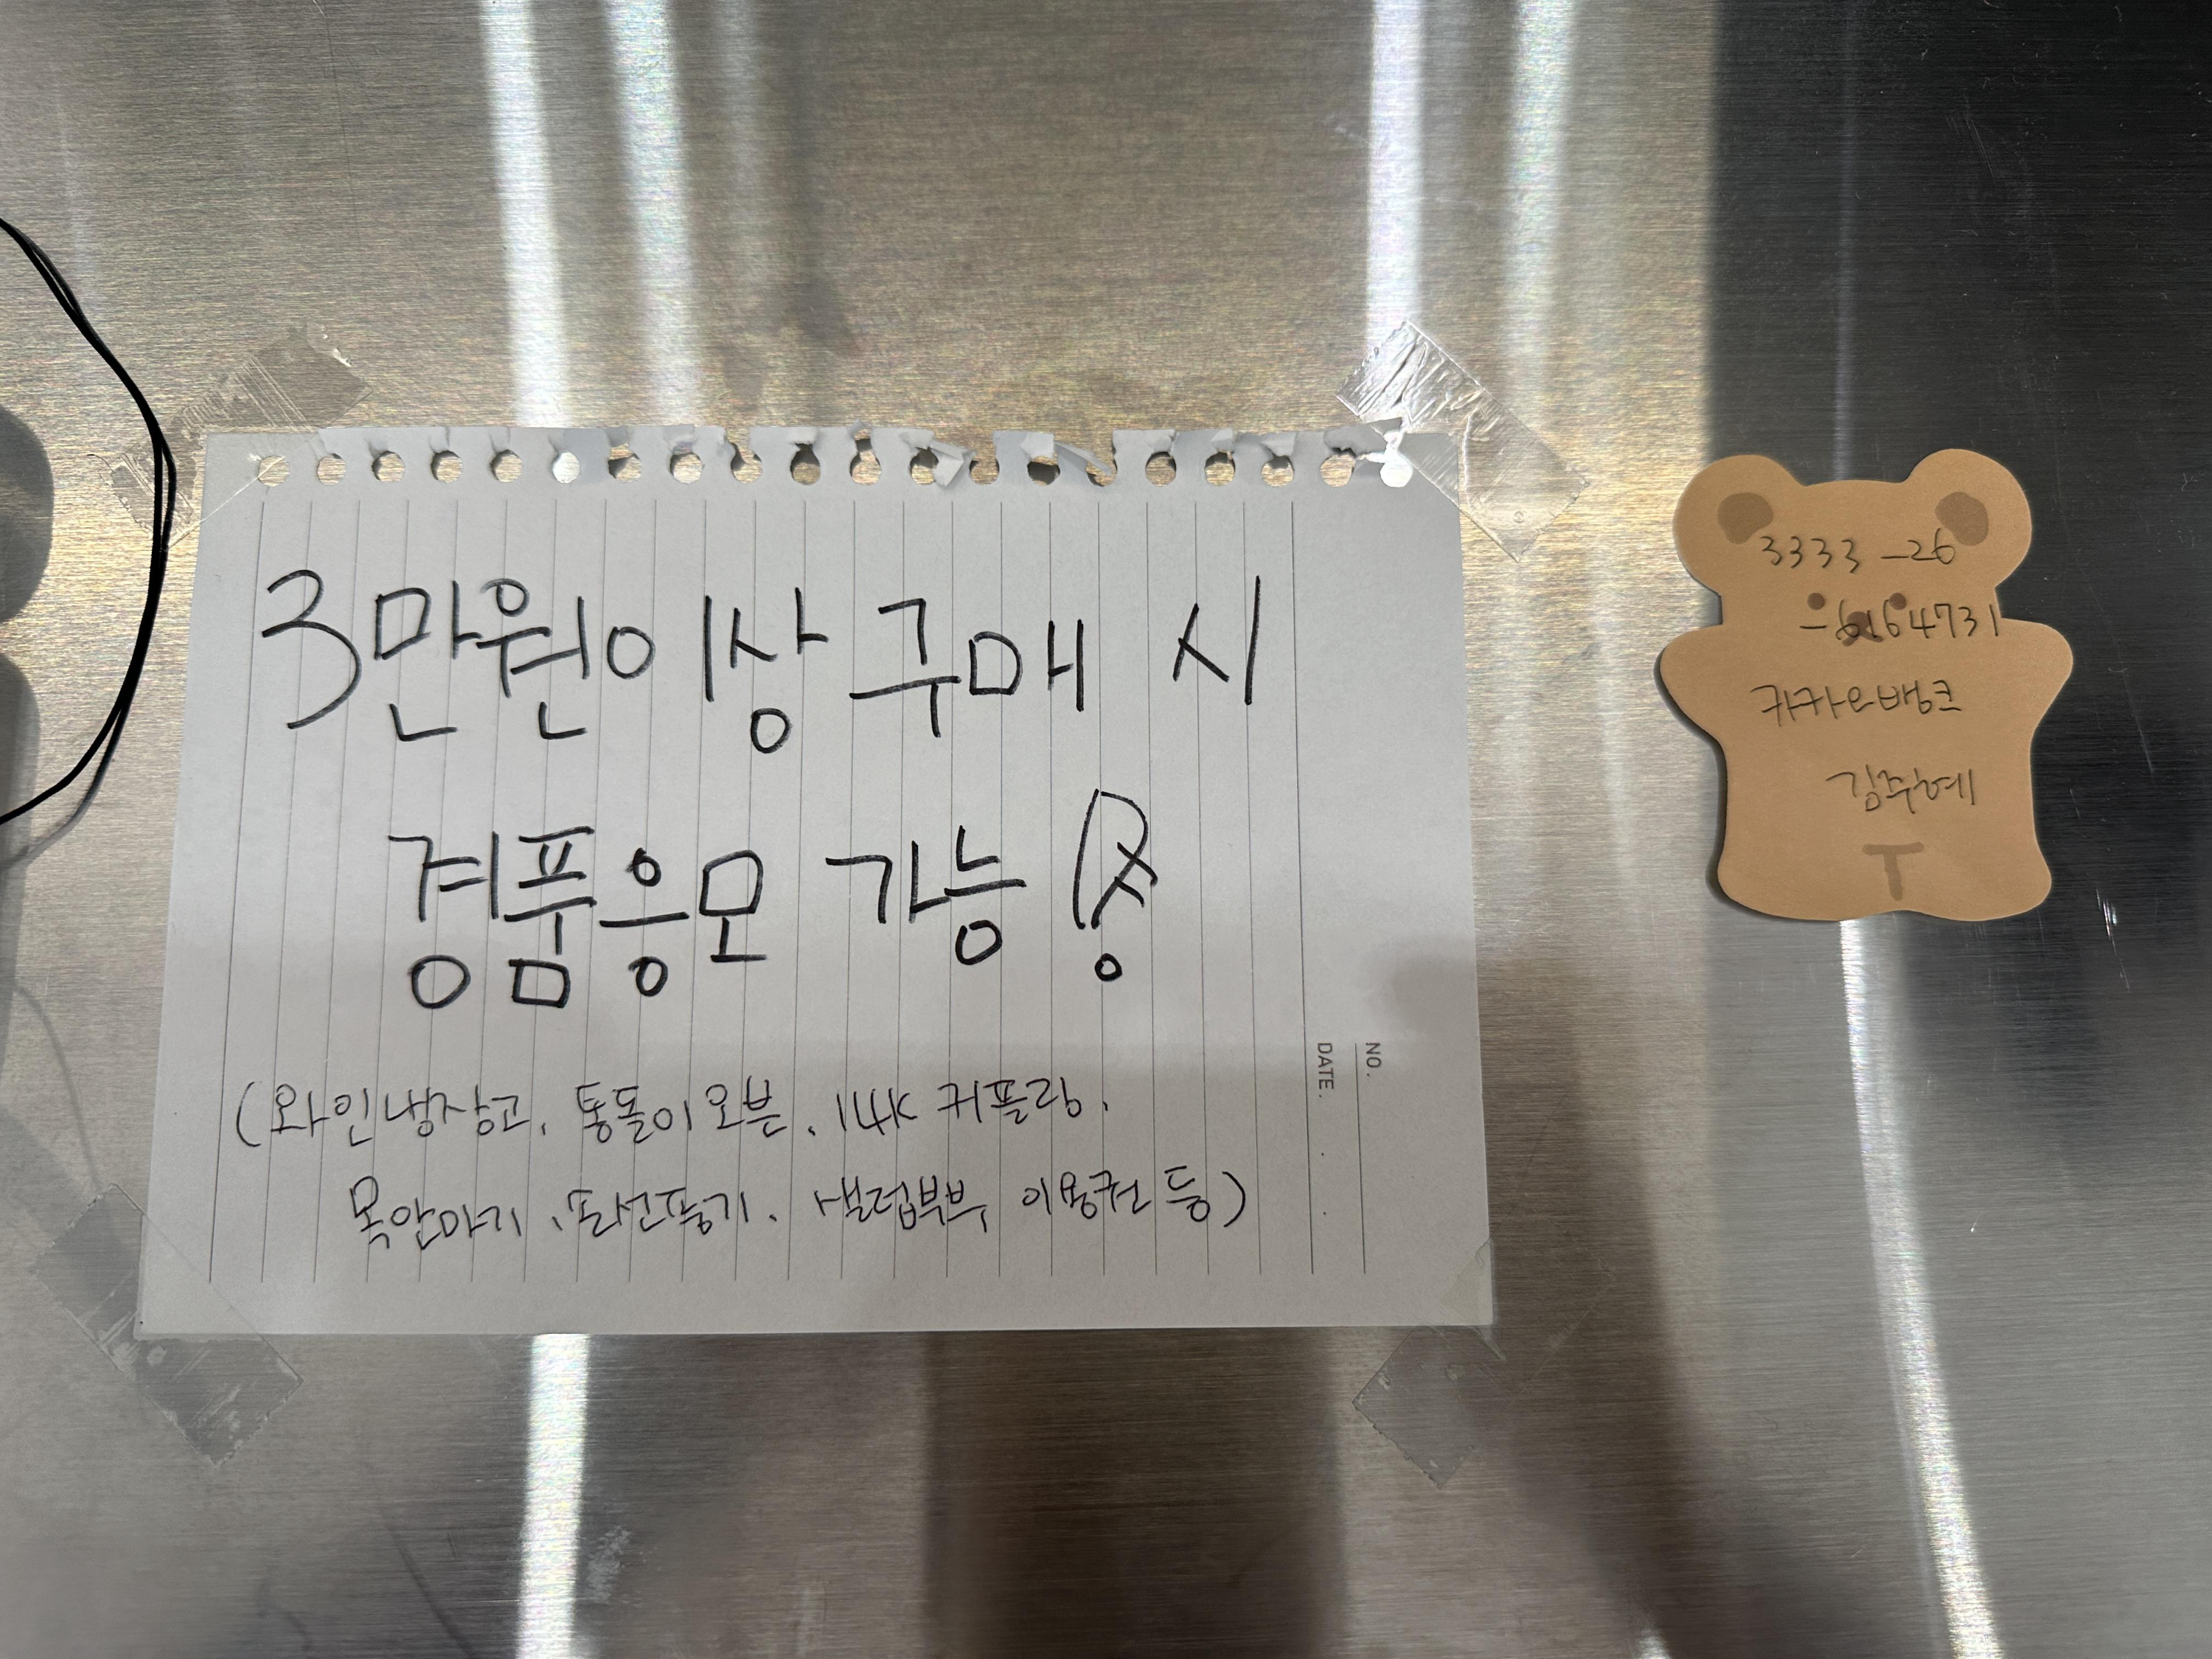 3만원이상 구매 시
경품응모 가능!
(와인냉장고, 통돌이오븐, 14K 커플링,
목안마기, 손선풍기, 셀럽부부 이용권 등)
NO.
DATE.
3333-26
-6164731
카카오뱅크
김주혜